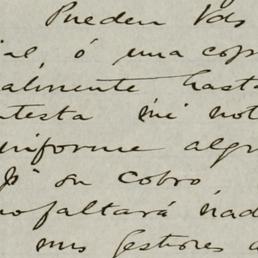 Pueden Vds
ial, ó una cop
almente hasta
ntesta mi not
informe algu
su cobro,
nofaltará nad
mis gestiones